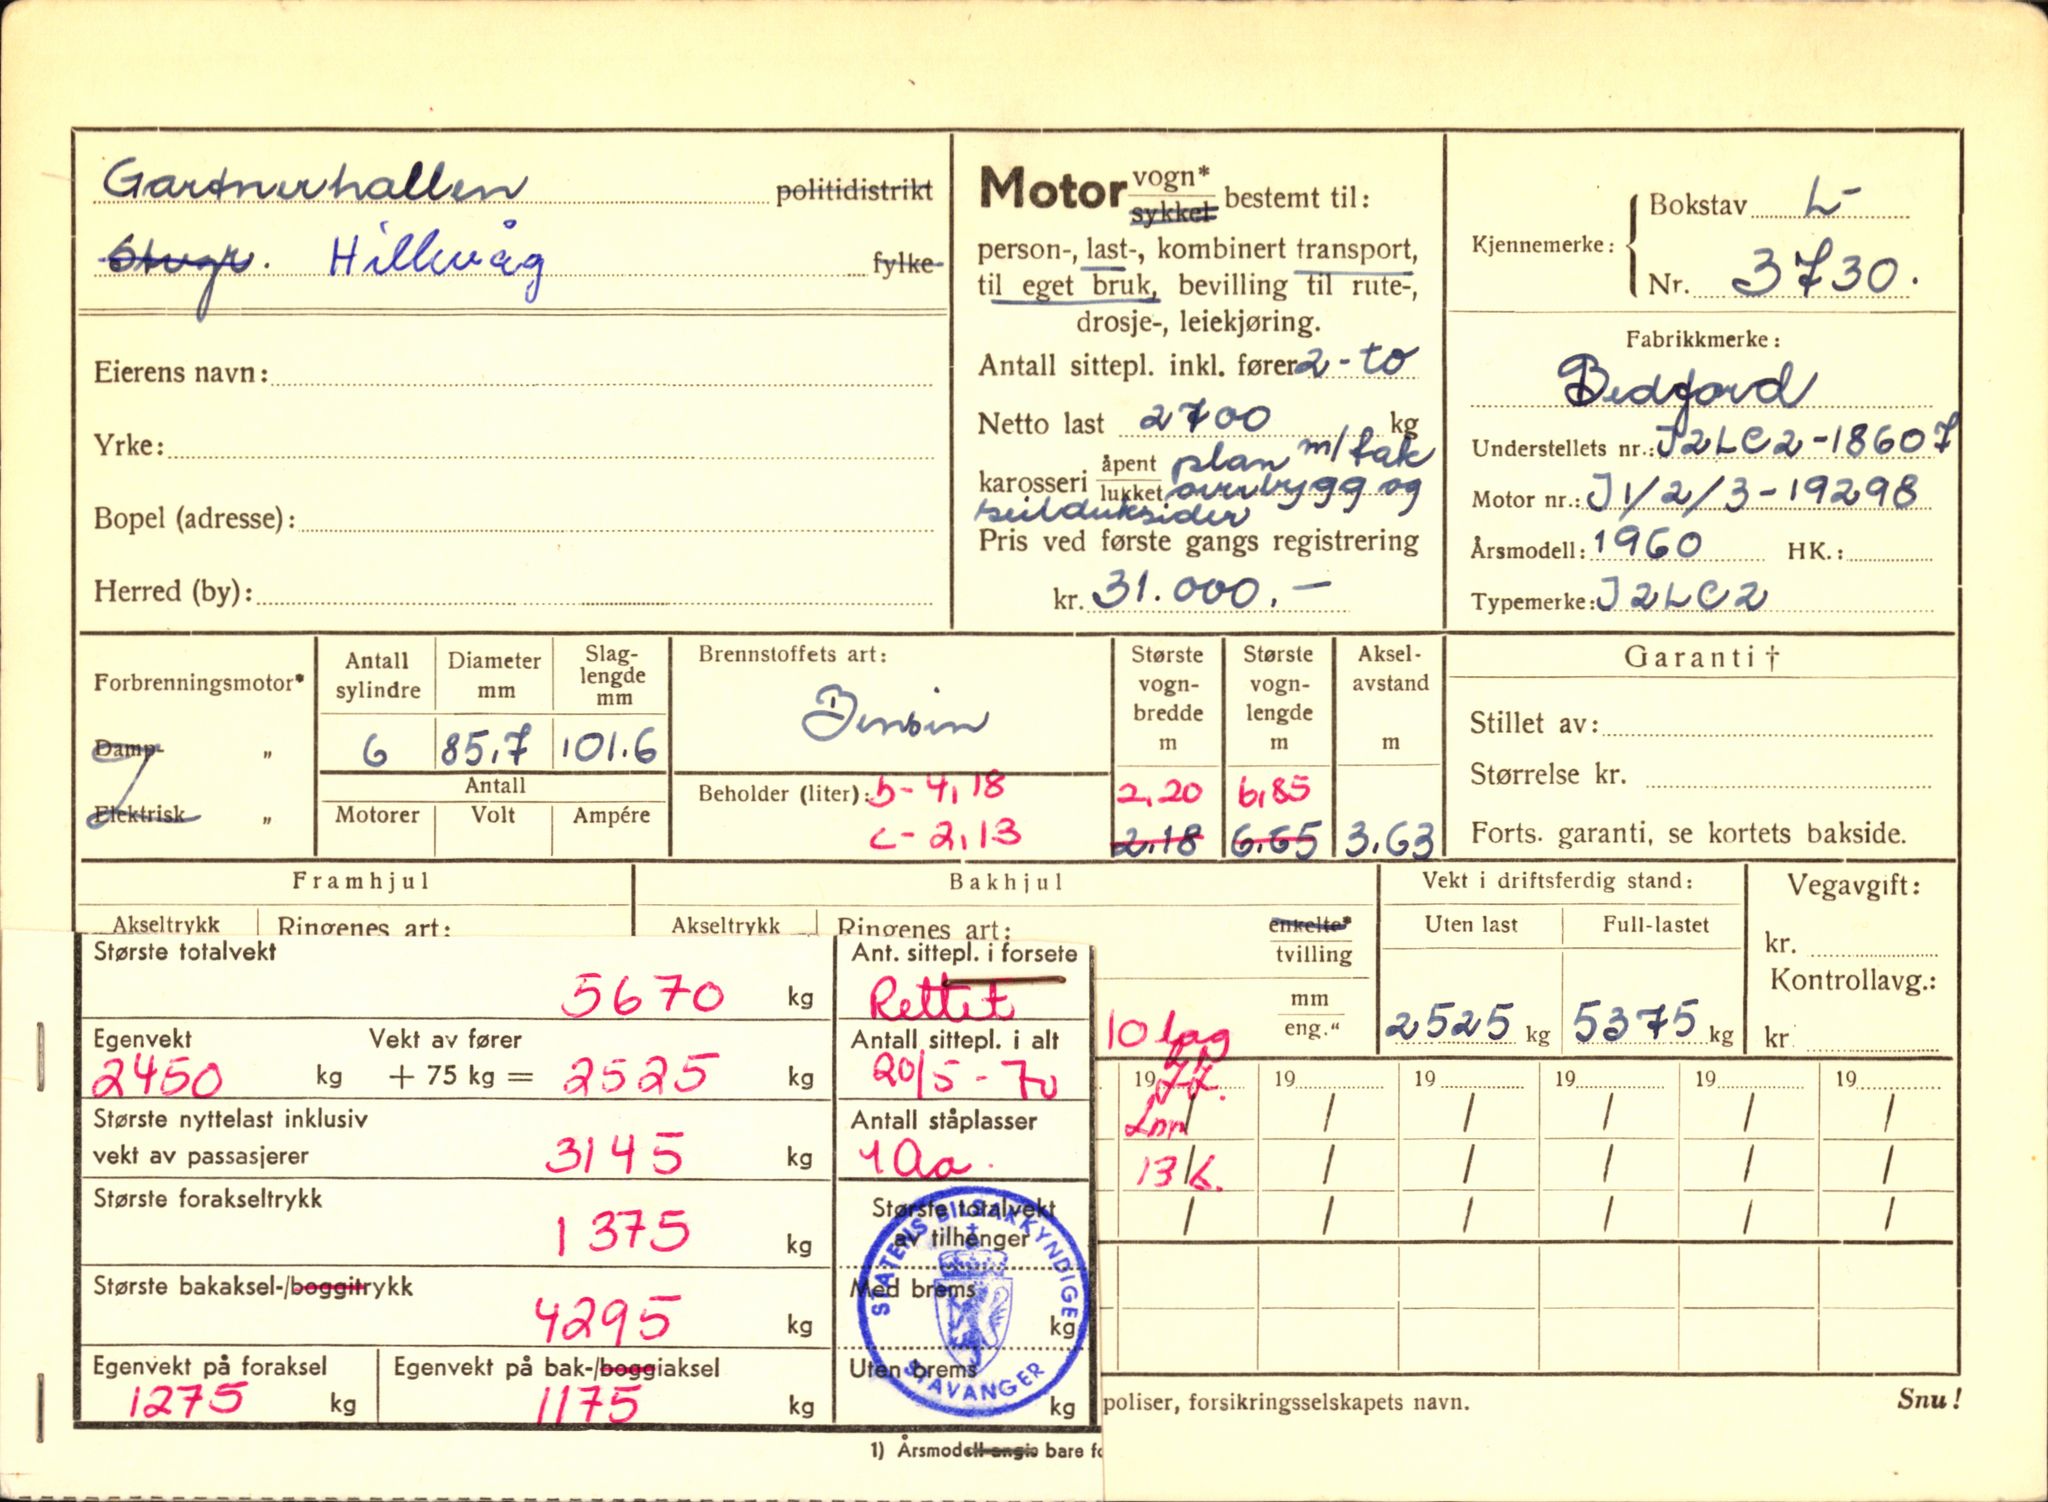 Gartnerhallen politidistrikt
Stvgr. Hillevåg fylke
Eierens navn:
Yrke:
Bopel (adresse):
Herred (by):
Motor vogn* sykkel bestemt til:
person-, last-, kombinert transport,
til eget bruk, bevilling til rute-,
drosje-, leiekjøring.
Antall sittepl. inkl. fører 2 - to
Netto last 2700 kg
karosseri åpent lukket plan m/ tak
overbygg og
seilduksider
Pris ved første gangs registrering
kr. 31.000.-
Kjennemerke: Bokstav L-
Nr. 3730.
Fabrikkmerke:
Bedford
Understellets nr.: J2LC2-18607
Motor nr.: J1/2/3-19298
Årsmodell: 1960 HK.:
Typemerke: J2LC2
Forbrenningsmotor*
Damp- „
Elektrisk „
Antall sylindre
6
Diameter mm
85,7
Slag-lengde mm
101.6
Antall
Motorer Volt Ampére
Brennstoffets art:
Bensin
Beholder (liter): b- 4,18
c- 2,13
Største vogn-bredde m
2,20
2.18
Største vogn-lengde m
6,85
6.65
Aksel-avstand m
3.63
Garanti †
Stillet av:
Størrelse kr.
Forts. garanti, se kortets bakside.
Framhjul
Akseltrykk Ringenes art:
Bakhjul
Akseltrykk Ringenes art:
enkelte*
tvilling
mm
eng."
10 lag
Vekt i driftsferdig stand:
Uten last Full-lastet
2525 kg 5375 kg
Vegavgift:
kr.
Kontrollavg.:
kr.
Største totalvekt
5670 kg
Egenvekt Vekt av fører
2450 kg + 75 kg = 2525 kg
Største nyttelast inklusiv
vekt av passasjerer 3145 kg
Største forakseltrykk
1375 kg
Største bakaksel-/boggitrykk
4295 kg
Egenvekt på foraksel
1275 kg
Egenvekt på bak-/boggiaksel
1175 kg
Ant. sittepl. i forsete
Rettet
Antall sittepl. i alt
20/5-70
Antall ståplasser
Største totalvekt
av tilhenger
Med brems
kg
Uten brems
kg
STATENS BILSAKKYNDIGE
STAVANGER
19 19 19 19 19 19
/ / / / / /
13/6. / / / / /
/ / / / / /
poliser, forsikringsselskapets navn.
Snu!
1) Årsmodell angis bare fo